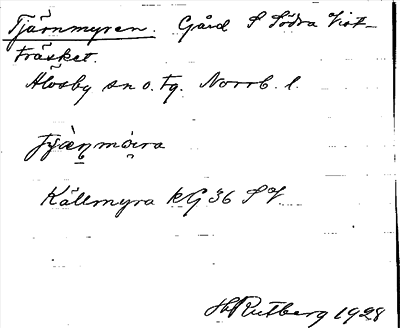 Tjärnmyren. Gård S Södra Vist-
träsket.
Älvsby sn o. tg. Norrb. l.
Källmyra kG 36 SV
Hj Rutberg 1928